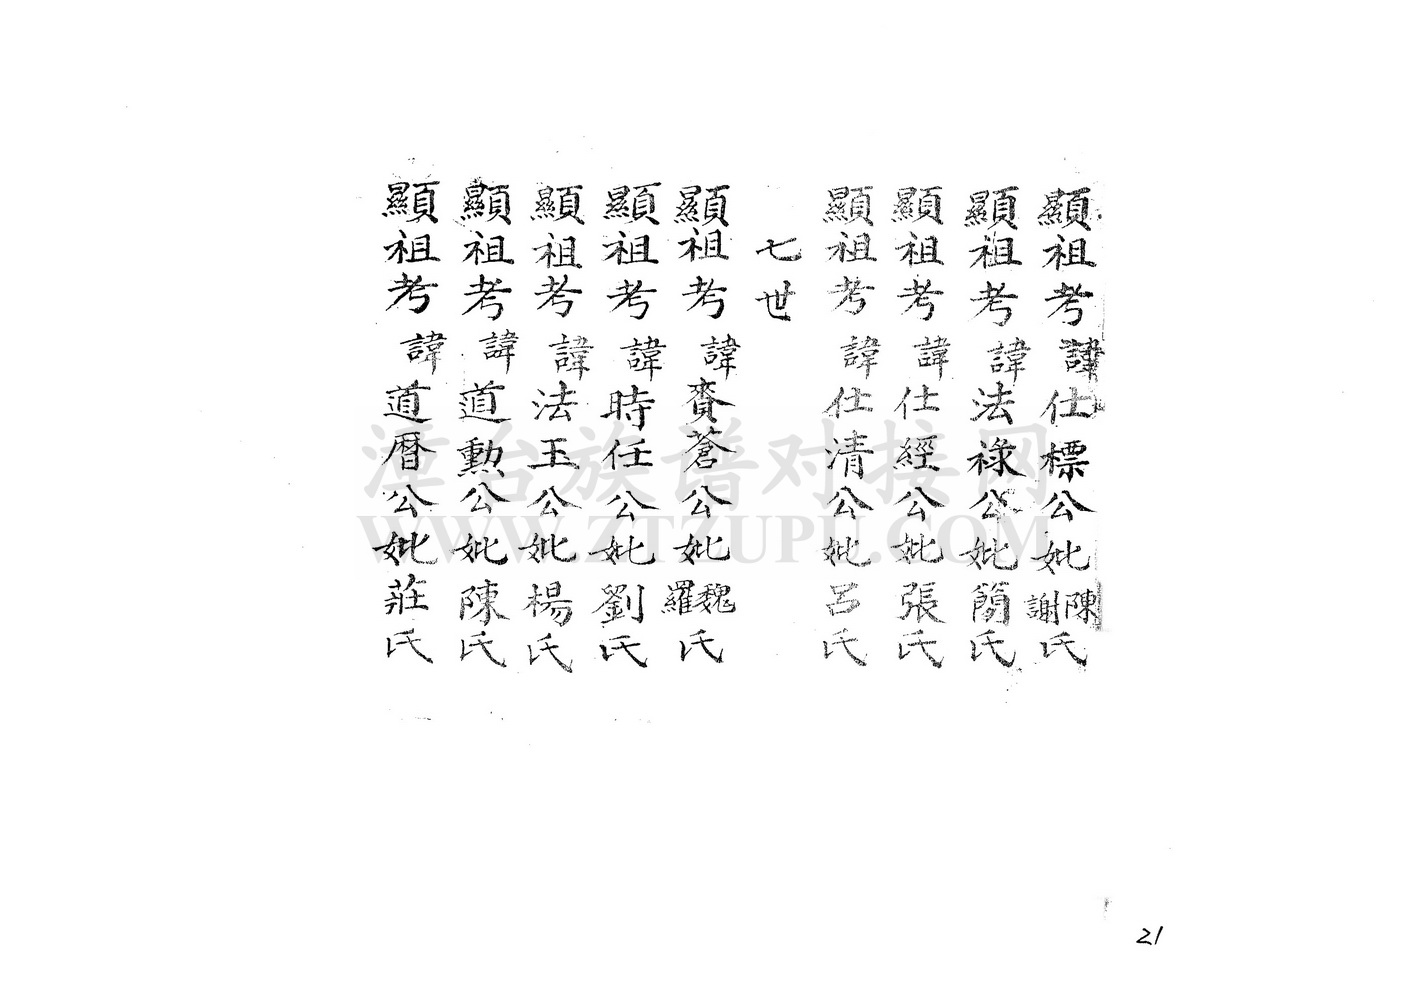 顯祖考諱仕標公妣陳謝氏
顯祖考諱法祿公妣簡氏
顯祖考諱仕經公妣張氏
顯祖考諱仕清公妣呂氏
七世
顯祖考諱賚蒼公妣魏羅氏
顯祖考諱時任公妣劉氏
顯祖考諱法玉公妣楊氏
顯祖考諱道勳公妣陳氏
顯祖考諱道曆公妣莊氏
漳台族谱对接网
WWW.ZTZUPU.COM
21